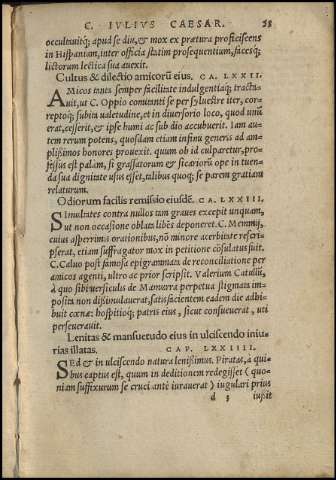 C. IVLIVS CAESAR. 28
occultuitq́; apud se diu, & mox ex prætura proficiscens
in Hispaniam, inter officia statim prosequentium, facesq́;
lictorum lectica sua auexit.
Cultus & dilectio amicorũ eius. CA. LXXII.
AMicos tanta semper facilitate indulgentiaq́; tracta-
uit, ut C. Oppio comitanti se per syluestre iter, cor-
reptoq́; subita ualetudine, et in diuersorio loco, quod unũ
erat, cesserit, & ipse humi ac sub dio accubuerit. Iam au-
tem rerum potens, quosdam etiam infimi generis ad am-
plissimos honores prouexit. quum ob id culparetur, pro-
fessus est palam, si grassatorum & sicariorũ ope in tuen-
da sua dignitate usus esset, talibus quoq́; se parem gratiam
relaturum.
Odiorum facilis remissio eiusdẽ. CA. LXXIII.
SImultates contra nullos tam graues excepit unquam,
ut non occasione oblata libẽs deponeret. C. Memmij,
cuius asperrimis orationibus, nõ minore acerbitate rescri-
pserat, etiam suffragator mox in petitione cõsulatus fuit.
C. Caluo post famosa epigrammata de reconciliatione per
amicos agenti, ultro ac prior scripsit. Valerium Catullũ,
à quo sibi uersiculis de Mamurra perpetua stigmata im-
posita non dissimulauerat, satisfacientem eadem die adhi-
buit cœnæ: hospitioq́; patris eius, sicut consueuerat, uti
perseuerauit.
Lenitas & mansuetudo eius in ulciscendo iniu-
rias illatas. CAP. LXXIIII.
SEd & in ulciscendo natura lenissimus. Piratas, à qui-
bus captus est, quum in deditionem redegisset (quo-
niam suffixurum se cruci ante iurauerat) iugulari prius
d 5 iussit